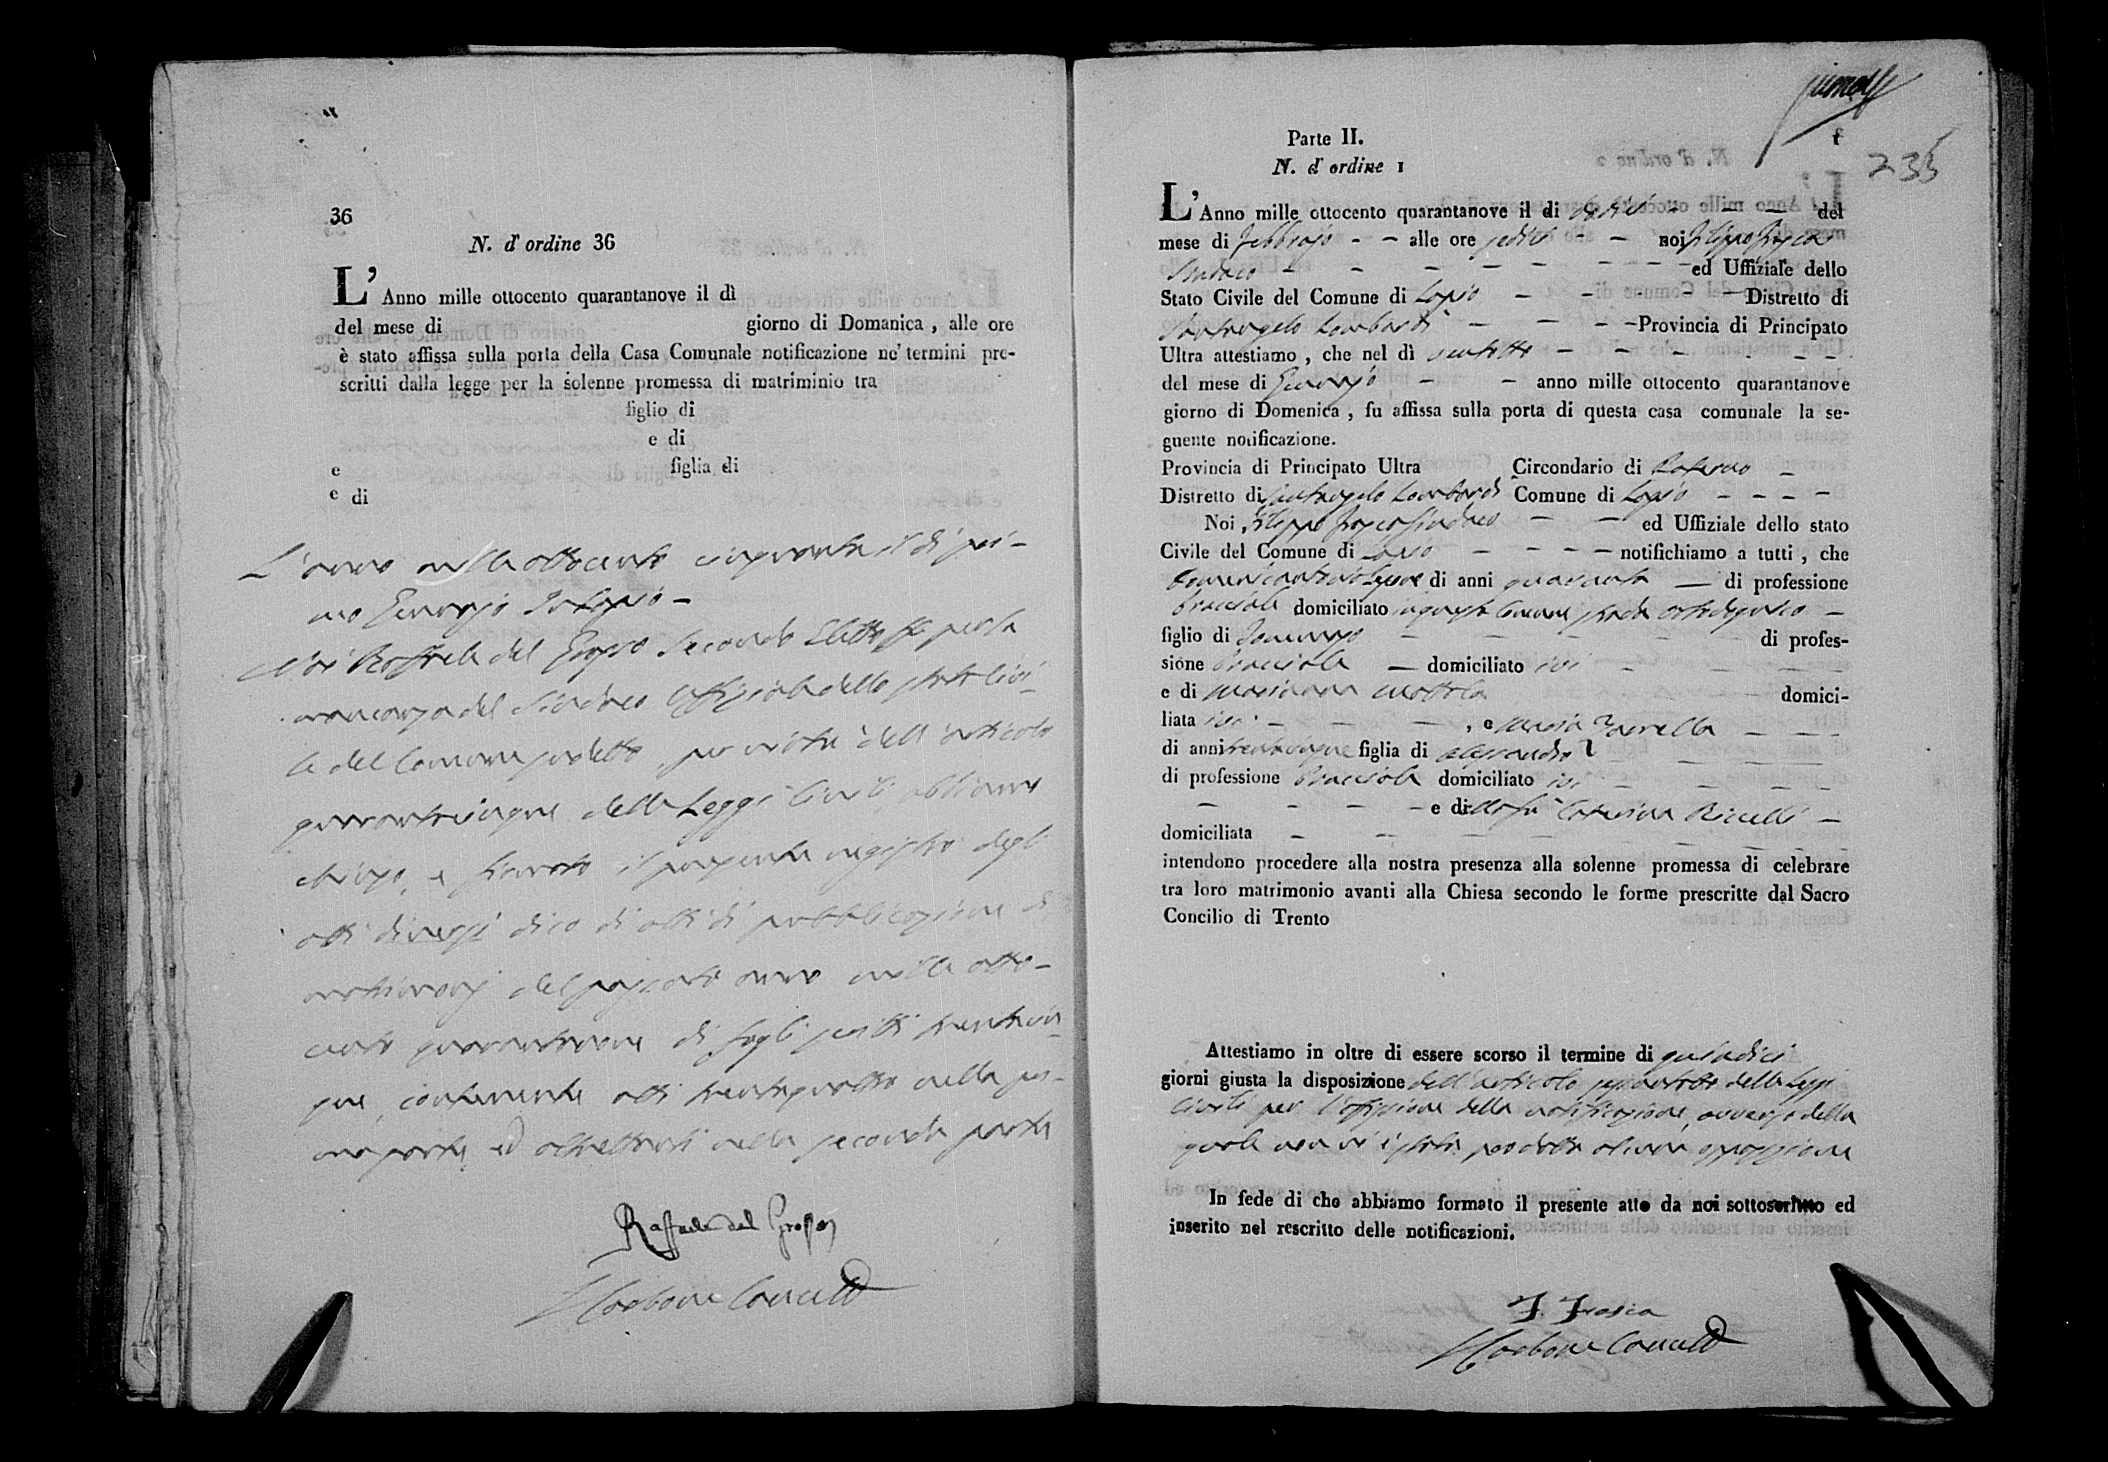 36
N. d'ordine 36
L'Anno mille ottocento quarantanove il dì
del mese di giorno di Domanica , alle ore
è stato affissa sulla porta della Casa Comunale notificazione ne' termini pre-
scritti dalla legge per la solenne promessa di matriminio tra
figlio di
e di
e figlia di
e di
L'anno mille ottocento cinquanta il di pri-
mo Gennajo in Lapio -
Noi Raffaele del Grosso Secondo Eletto ff per la
mancanza del Sindaco Uffiziale dello stato Civi-
le del Comune sudetto, per virtù dell'articolo
quarantacinque delle Leggi Civili abbiamo
chiuso, e fermato il presente registro degli
atti diversi dico di atti di pubblicazione di
matrimonj del passato anno mille otto-
cento quarantanove di fogli scritti trentacin-
que, contenente atti trentaquattro nella pri-
ma parte, ed altrettanti nella seconda parte
Raffaele del Grosso
Carbone Cancell
1
235
Parte II.
N. d'ordine 1
L'Anno mille ottocento quarantanove il di del
mese di Febbrajo - - alle ore sedici - - noi Filippo Frasca
Sindaco - - - - - - ed Uffiziale dello
Stato Civile del Comune di Lapio - - - - Distretto di
Santangelo Lombardi - - - Provincia di Principato
Ultra attestiamo , che nel dì ventotto - - - - -
del mese di Gennajo - - anno mille ottocento quarantanove
giorno di Domenica , fu affissa sulla porta di questa casa comunale la se-
guente notificazione.
Provincia di Principato Ultra Circondario di Paterno -
Distretto di Santangelo Lombardi Comune di Lapio - - - -
Noi Filippo Frasca Sindaco - - ed Uffiziale dello stato
Civile del Comune di Lapio - - - - notifichiamo a tutti , che
Domenicantonio di anni quaranta - di professione
bracciale domiciliato in questo Comune strada -
figlio di Gennajo - - - - - di profes-
sione bracciale - domiciliato ivi - - - -
e di Marianna Mottola domici-
liata ivi - - - , e Maria Zarrella - - -
di anni trentacinque figlia di Alessandro - - -
di professione bracciale domiciliato ivi - - - -
- - - - e di della fu Caterina Ricelli -
domiciliata - - - -
intendono procedere alla nostra presenza alla solenne promessa di celebrare
tra loro matrimonio avanti alla Chiesa secondo le forme prescritte dal Sacro
Concilio di Trento
Attestiamo in oltre di essere scorso il termine di quindici
giorni giusta la disposizione dell'articolo sessantotto delle Leggi
Civili per l'affissione della notificazione, avverso della
quale non vi è stata prodotta alcuna opposizione
In fede di che abbiamo formato il presente atto da noi sottoscritto ed
inserito nel rescritto delle notificazioni.
F. Frasca
Carbone Cancell